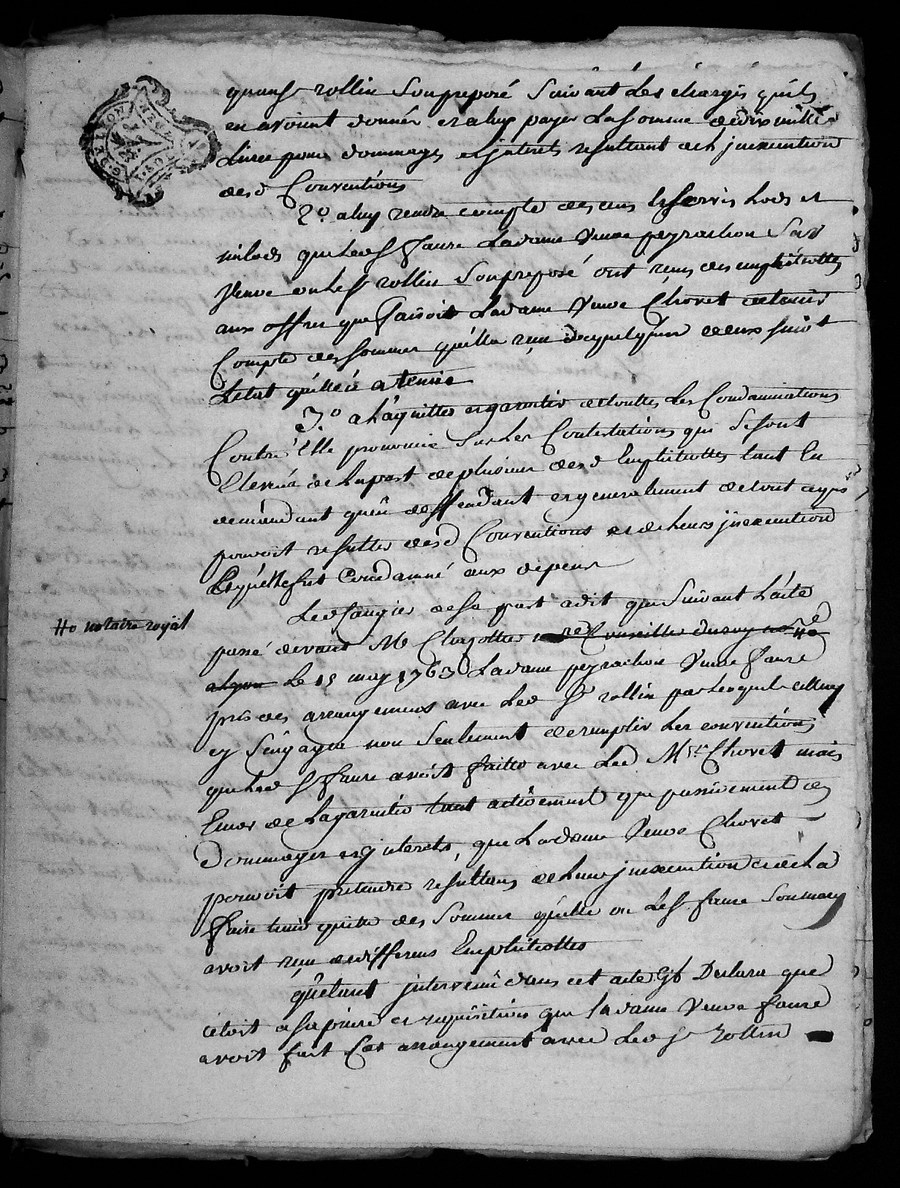 quau sr rollin son preposé suivant les charges quils
en avoient donnée et a luy payer la somme de dix mille
livres pour dommages et jnterets resultant de l'jnexecution
desd Conventions
2o. a luy rendre compte des cens et servis lods et
milods que led sr faure la dame veuve peyrachon sa
veuve ou le sr rollin son preposé ont reçus des emphiteottes
aux offres que faisoit la dame veuve Chovet de tenir
Compte des sommes quelle a reçu de quelqun deux suivt
l'etat quelle a tenue
3.o a l'aquitter et garantir de touttes les Condamnations
Contre Elle prononcée sur les Contestations qui se sont
Elevées de la part de plusieurs desd Emphiteottes tant En
demandant qu'en deffendant et generalement de tout ce qui
pouvoit resulter desd Conventions et de leurs jnexecution
Et quelle fut Condamné aux depens
Led saugier de sa part a dit que suivant l'acte
#o notaire royal
passé devant Me Chapottier
Le 15 may 1763 la dame peyrachon veuve faure
prit des arrangemens avec led sr rollin par lesquels celluy
cy s'engagea non seulement de remplir les conventions
que led sr faure avoit faites avec led Mrs Chovet mais
Encor de la garantir tant activement que passivement des
Dommages et jnterets que la dame veuve Chovet
pouvoit pretendre resultans de leur jnexecution et de la
faire tenir quitte des sommes qu'elle ou le sr faure son mary
avoit reçu de differens Emphiteottes
qu'etant jntervenu dans cet acte Declara que
c'etoit a sa priere et requisitions que la dame veuve faure
avoit fait Cet arrangement avec led sr rollin